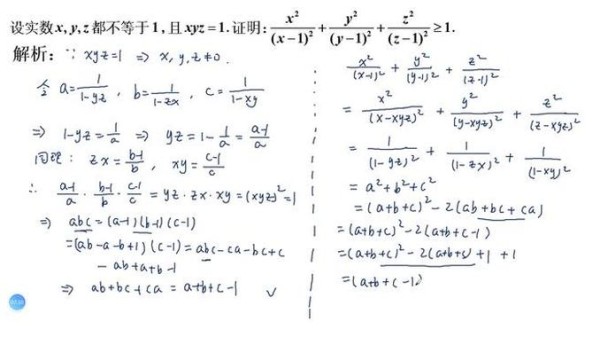 设实数x, y, z都不等于1, 且xyz=1. 证明: x²/(x-1)² + y²/(y-1)² + z²/(z-1)² ≥ 1.
解析: ∵ xyz=1 ⇒ x, y, z≠0.
令 a=1/(1-yz), b=1/(1-zx), c=1/(1-xy)
⇒ 1-yz=1/a ⇒ yz=1-1/a=(a-1)/a
同理: zx=(b-1)/b, xy=(c-1)/c
∴ (a-1)/a · (b-1)/b · (c-1)/c = yz·zx·xy=(xyz)²=1
⇒ abc=(a-1)(b-1)(c-1)
=(ab-a-b+1)(c-1)=abc-ca-bc+c
-ab+a+b-1
⇒ ab+bc+ca=a+b+c-1 √
x²/(x-1)² + y²/(y-1)² + z²/(z-1)²
= x²/(x-xyz)² + y²/(y-xyz)² + z²/(z-xyz)²
= 1/(1-yz)² + 1/(1-zx)² + 1/(1-xy)²
= a²+b²+c²
=(a+b+c)²-2(ab+bc+ca)
=(a+b+c)²-2(a+b+c-1)
=(a+b+c)²-2(a+b+c)+1+1
=(a+b+c-1)